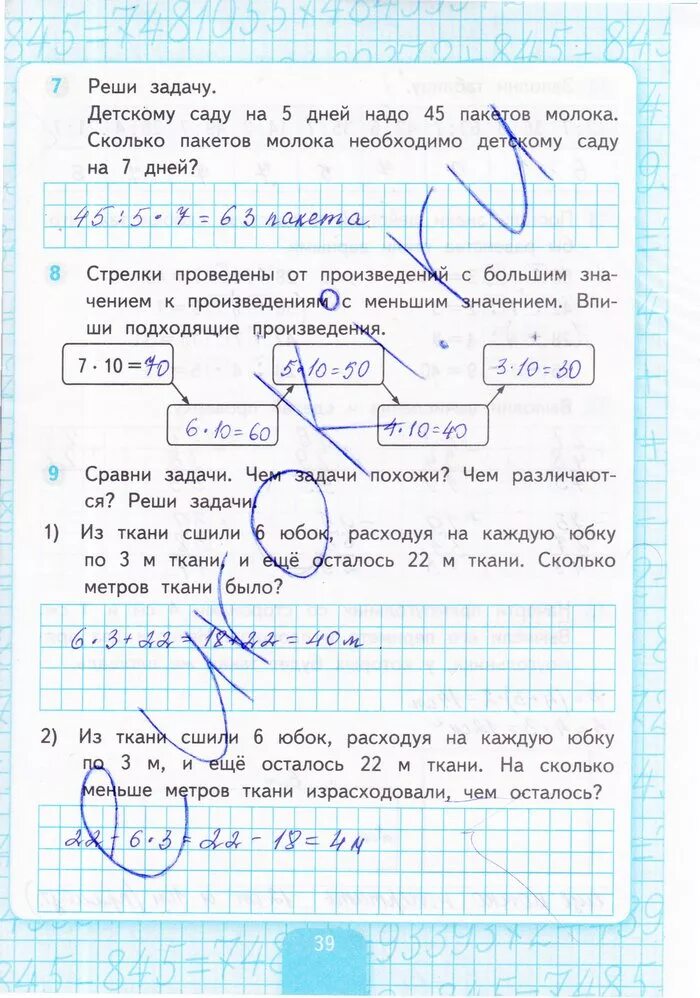 7 Реши задачу.
Детскому саду на 5 дней надо 45 пакетов молока.
Сколько пакетов молока необходимо детскому саду
на 7 дней?
45 : 5 · 7 = 63 пакета
8 Стрелки проведены от произведений с большим зна-
чением к произведениям с меньшим значением. Впи-
ши подходящие произведения.
7 · 10 = 70
5 · 10 = 50
3 · 10 = 30
6 · 10 = 60
4 · 10 = 40
9 Сравни задачи. Чем задачи похожи? Чем различают-
ся? Реши задачи.
1) Из ткани сшили 6 юбок, расходуя на каждую юбку
по 3 м ткани, и ещё осталось 22 м ткани. Сколько
метров ткани было?
6 · 3 + 22 = 18 + 22 = 40 м
2) Из ткани сшили 6 юбок, расходуя на каждую юбку
по 3 м, и ещё осталось 22 м ткани. На сколько
меньше метров ткани израсходовали, чем осталось?
22 - 6 · 3 = 22 - 18 = 4 м
39